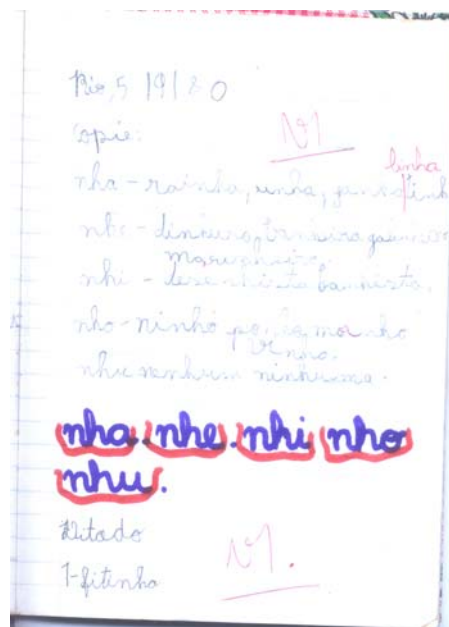 Rio, 5 19 / 8 0
Copie:
V1
linha
nha - rainha, unha,
nhe - dinheiro,
marinheiro.
nhi - desenhista banhista.
nho - ninho
vinho.
nhu nenhum ninhuma.
nha. nhe. nhi nho
nhu.
Ditado
V1.
1-fitinha